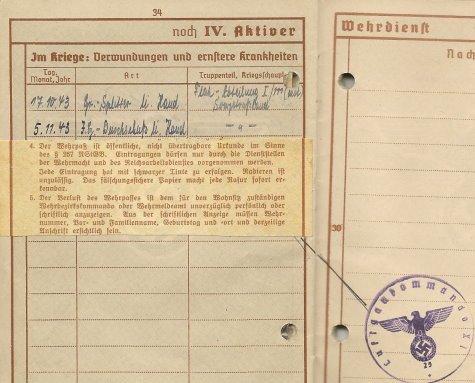 34
noch IV. Aktiver
Im Kriege: Verwundungen und ernstere Krankheiten
Tag, Monat, Jahr
Art
Truppenteil, Kriegsschaupl
17.10.43 Gr.-Splitter li. Hand Flak-Abteilung I/
5.11.43 I.G.-Durchschuß li. Hand - " -
4. Der Wehrpaß ist öffentliche, nicht übertragbare Urkunde im Sinne
des § 267 RStGB. Eintragungen dürfen nur durch die Dienststellen
der Wehrmacht und des Reichsarbeitsdienstes vorgenommen werden.
Jede Eintragung hat mit schwarzer Tinte zu erfolgen. Radieren ist
unzulässig. Das fälschungssichere Papier macht jede Rasur sofort er-
kennbar.
5. Der Verlust des Wehrpasses ist dem für den Wohnsitz zuständigen
Wehrbezirkskommando oder Wehrmeldeamt unverzüglich persönlich oder
schriftlich anzuzeigen. Aus der schriftlichen Anzeige müssen Wehr-
nummer, Vor- und Familienname, Geburtstag und -ort und derzeitige
Anschrift ersichtlich sein.
Wehrdienst
Nach
30
Luftgaukommando XI
29